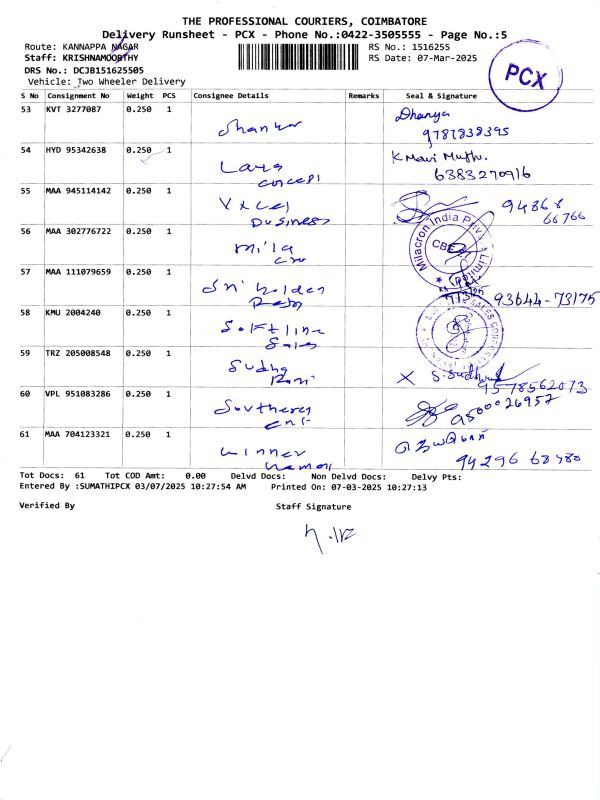 THE PROFESSIONAL COURIERS, COIMBATORE
Delivery Runsheet - PCX - Phone No.:0422-3505555 - Page No.:5
Route: KANNAPPA NAGAR
Staff: KRISHNAMOORTHY
DRS No.: DCJB151625505
Vehicle: Two Wheeler Delivery
RS No.: 1516255
RS Date: 07-Mar-2025
PCX
S No Consignment No Weight PCS Consignee Details Remarks Seal & Signature
53 KVT 3277087 0.250 1 Shankar Dhanya
9787838395
54 HYD 95342638 0.250 1 Lara K Mani Muth.
6383270916
55 MAA 945114142 0.250 1 Vxcel 94868
Business 66766
56 MAA 302776722 0.250 1 Mila Milacron India Private Limited
CBE
57 MAA 111079659 0.250 1 Sri Golden
93644-73175
58 KMU 2004240 0.250 1 Softline
Sales
59 TRZ 205008548 0.250 1 Sudha S. Sudha
Rani 9578562073
60 VPL 951083286 0.250 1 Southern
Ent 9500026957
61 MAA 704123321 0.250 1 Winner
94296 68480
Tot Docs: 61 Tot COD Amt: 0.00 Delvd Docs: Non Delvd Docs: Delvy Pts:
Entered By :SUMATHIPCX 03/07/2025 10:27:54 AM Printed On: 07-03-2025 10:27:13
Verified By Staff Signature